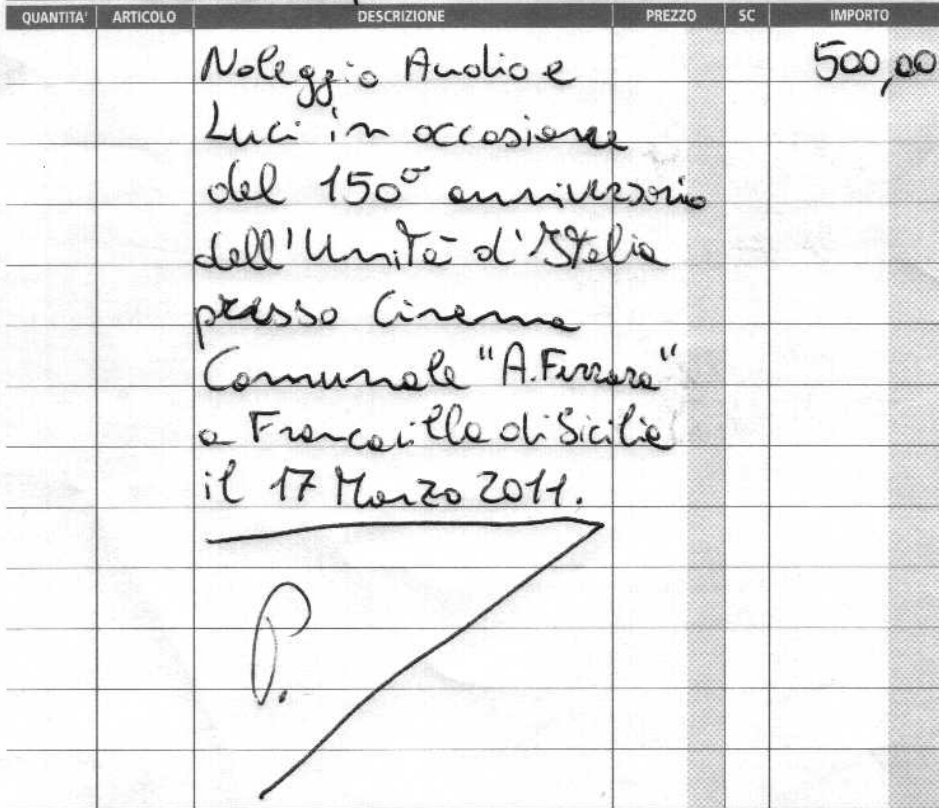 QUANTITA' ARTICOLO DESCRIZIONE PREZZO SC IMPORTO
Noleggio Audio e 500,00
Luci in occasione
del 150° anniversario
dell'Unità d'Italia
presso Cinema
Comunale "A. Ferrara"
a Francavilla di Sicilia
il 17 Marzo 2011.
P.